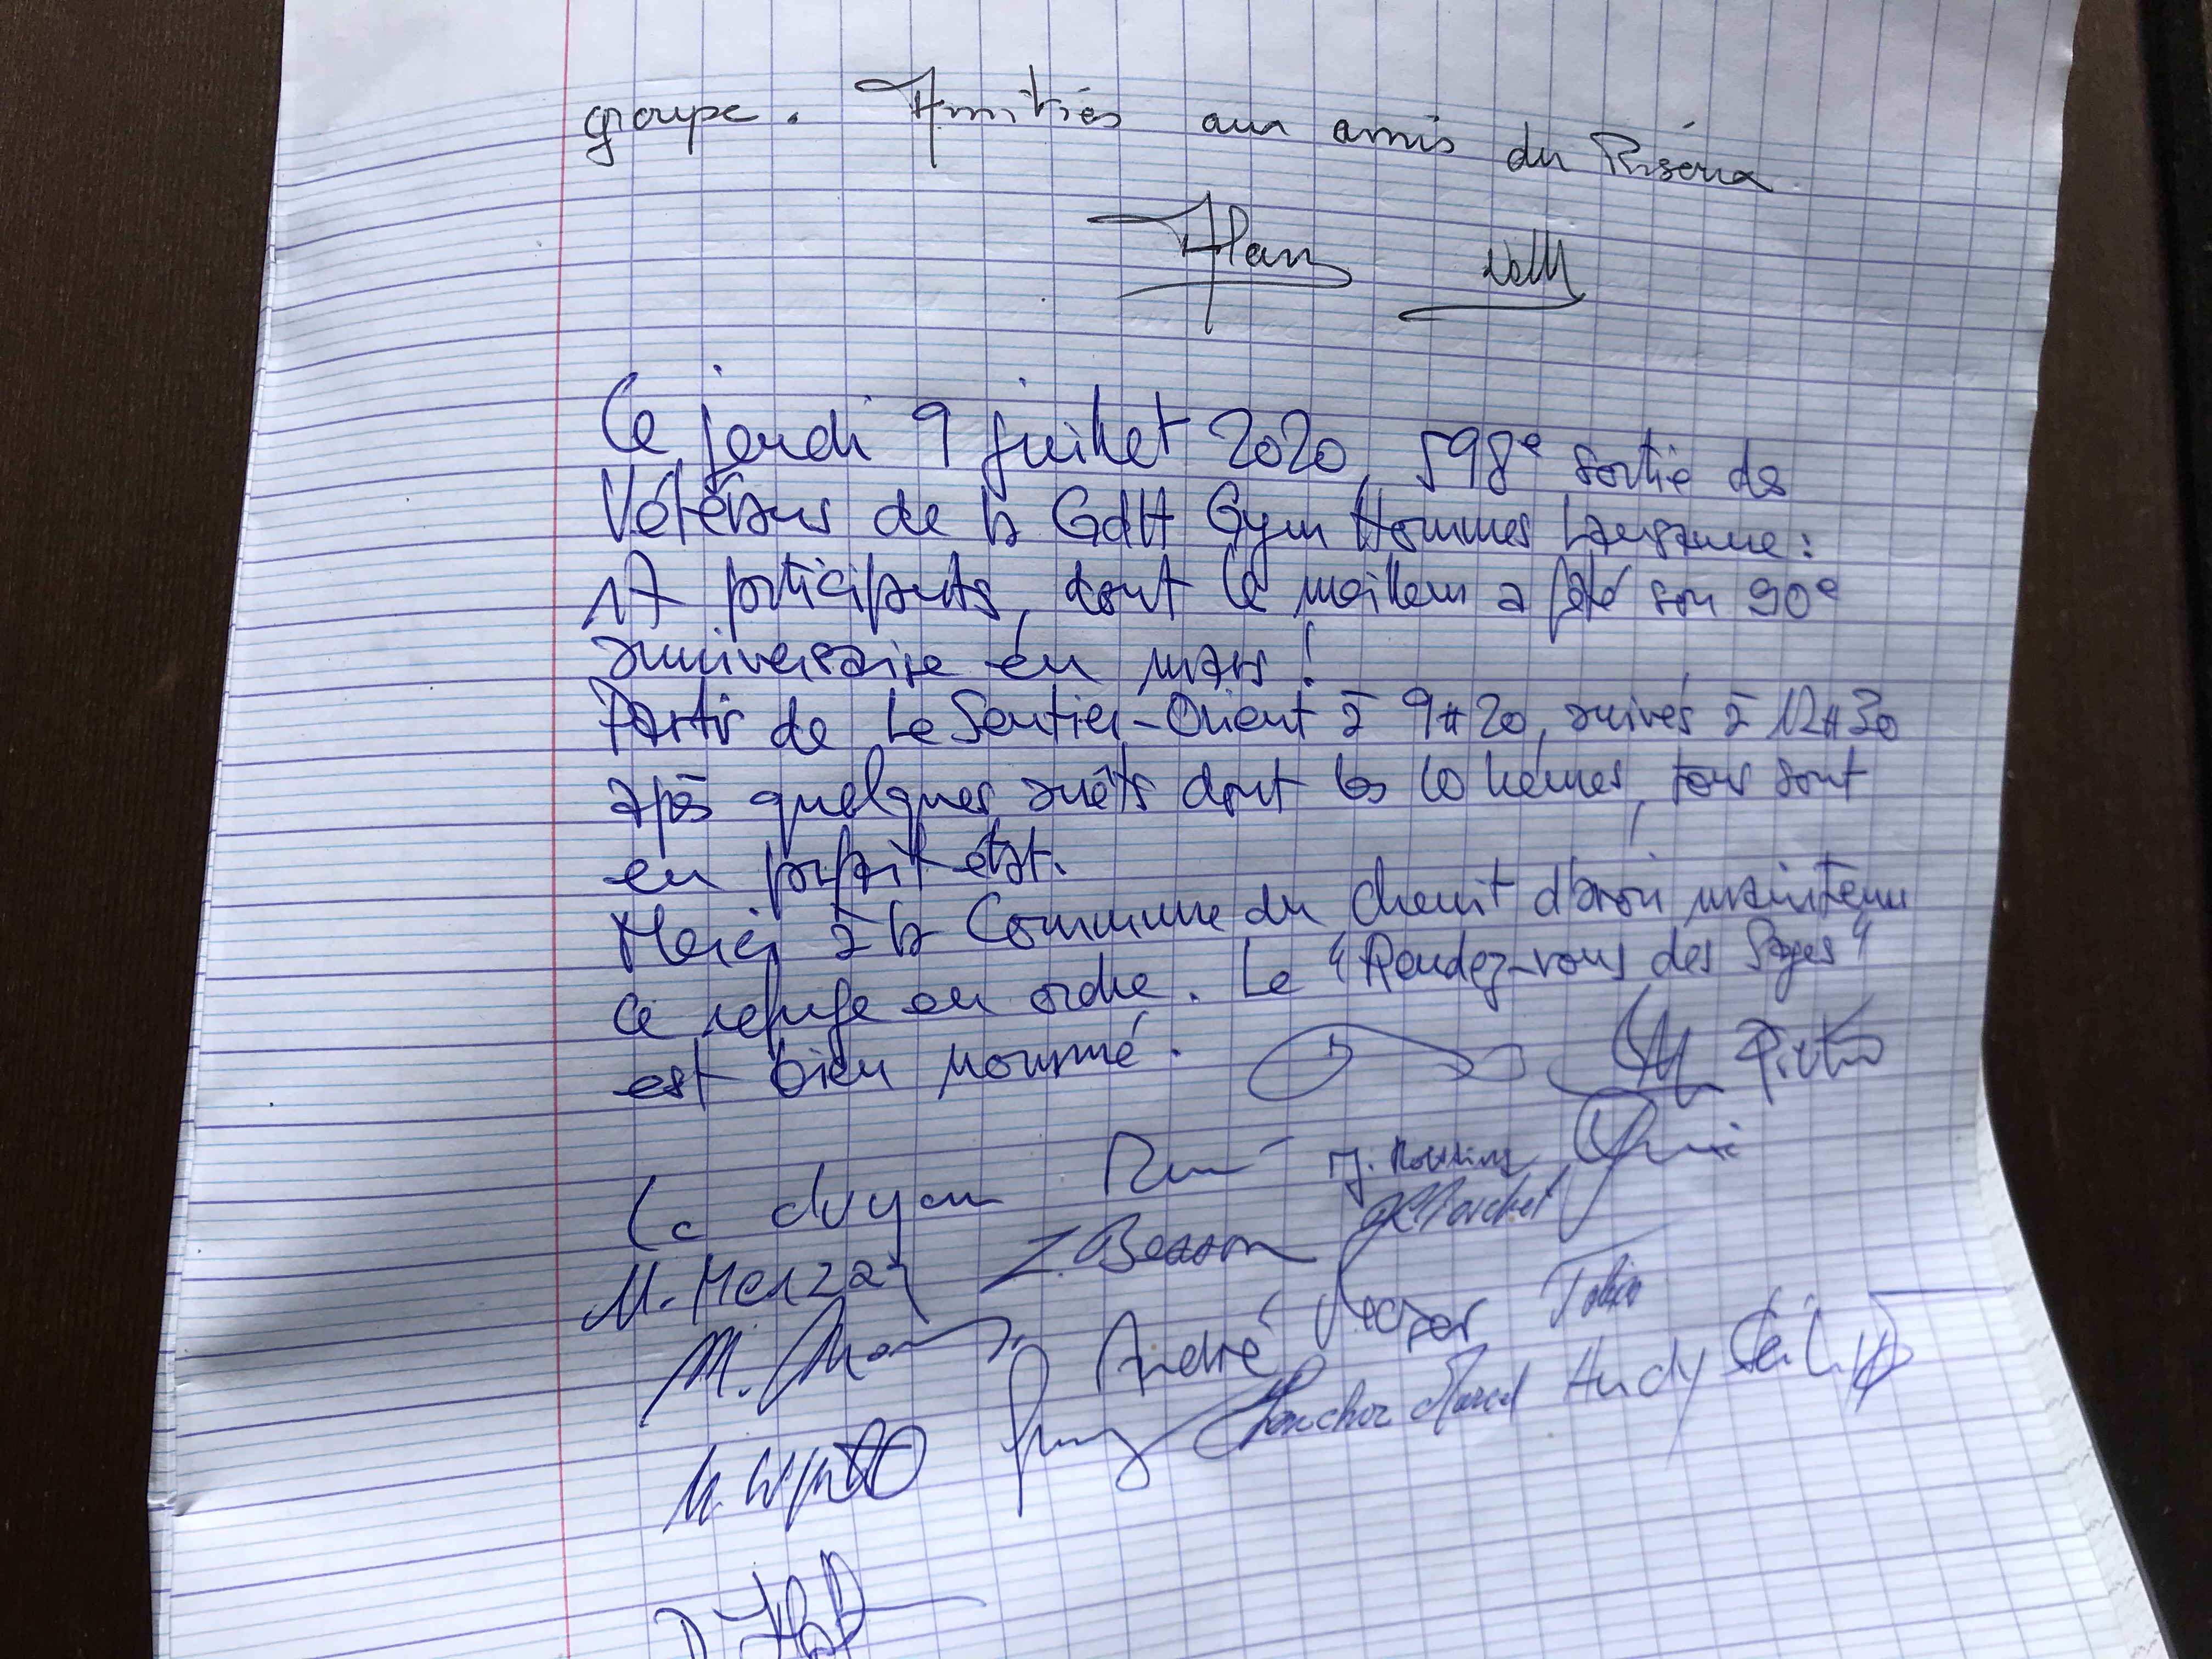 groupe. Amitiés aux amis du Risoux
Alain
Ce jeudi 9 juillet 2020, 598e sortie des
Vétérans de la GdH Gym Hommes Lausanne:
17 participants, dont le meilleur a fêté son 90e
anniversaire en mars!
Partis de Le Sentier-Orient à 9H20, arrivés à 12H30
après quelques arrêts dont les 10 heures, tous sont
en parfait état.
Merci à la Commune du Chenit d'avoir maintenu
ce refuge en ordre. Le "Rendez-vous des Sages"
est bien nommé.
Le doyen René
M. Menzay Z. Besson
M. André Tobie
Marcel Andy